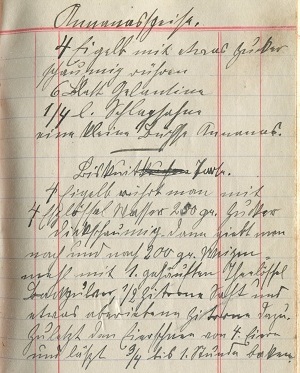 Ananasspeise.
4 Eigelb mit etwas Zucker
schaumig rühren
6 Blatt Gelantine
1/4 l. Schlagsahne
eine kleine Büchse Ananas.
Biskuit Torte.
4 Eigelb rührt man mit
4 Eßlöffel Wasser 250 gr. Zucker
dickschaumig dann giebt man
nach und nach 200 gr. Weizen-
mehl mit 1 gehäuften Theelöffel
Backpulver 1/2 Zitrone Saft und
etwas abgeriebene Zitrone dazu.
Zuletzt den Eierschnee von 4 Eier
und läßt 3/4 bis 1 Stunde backen.